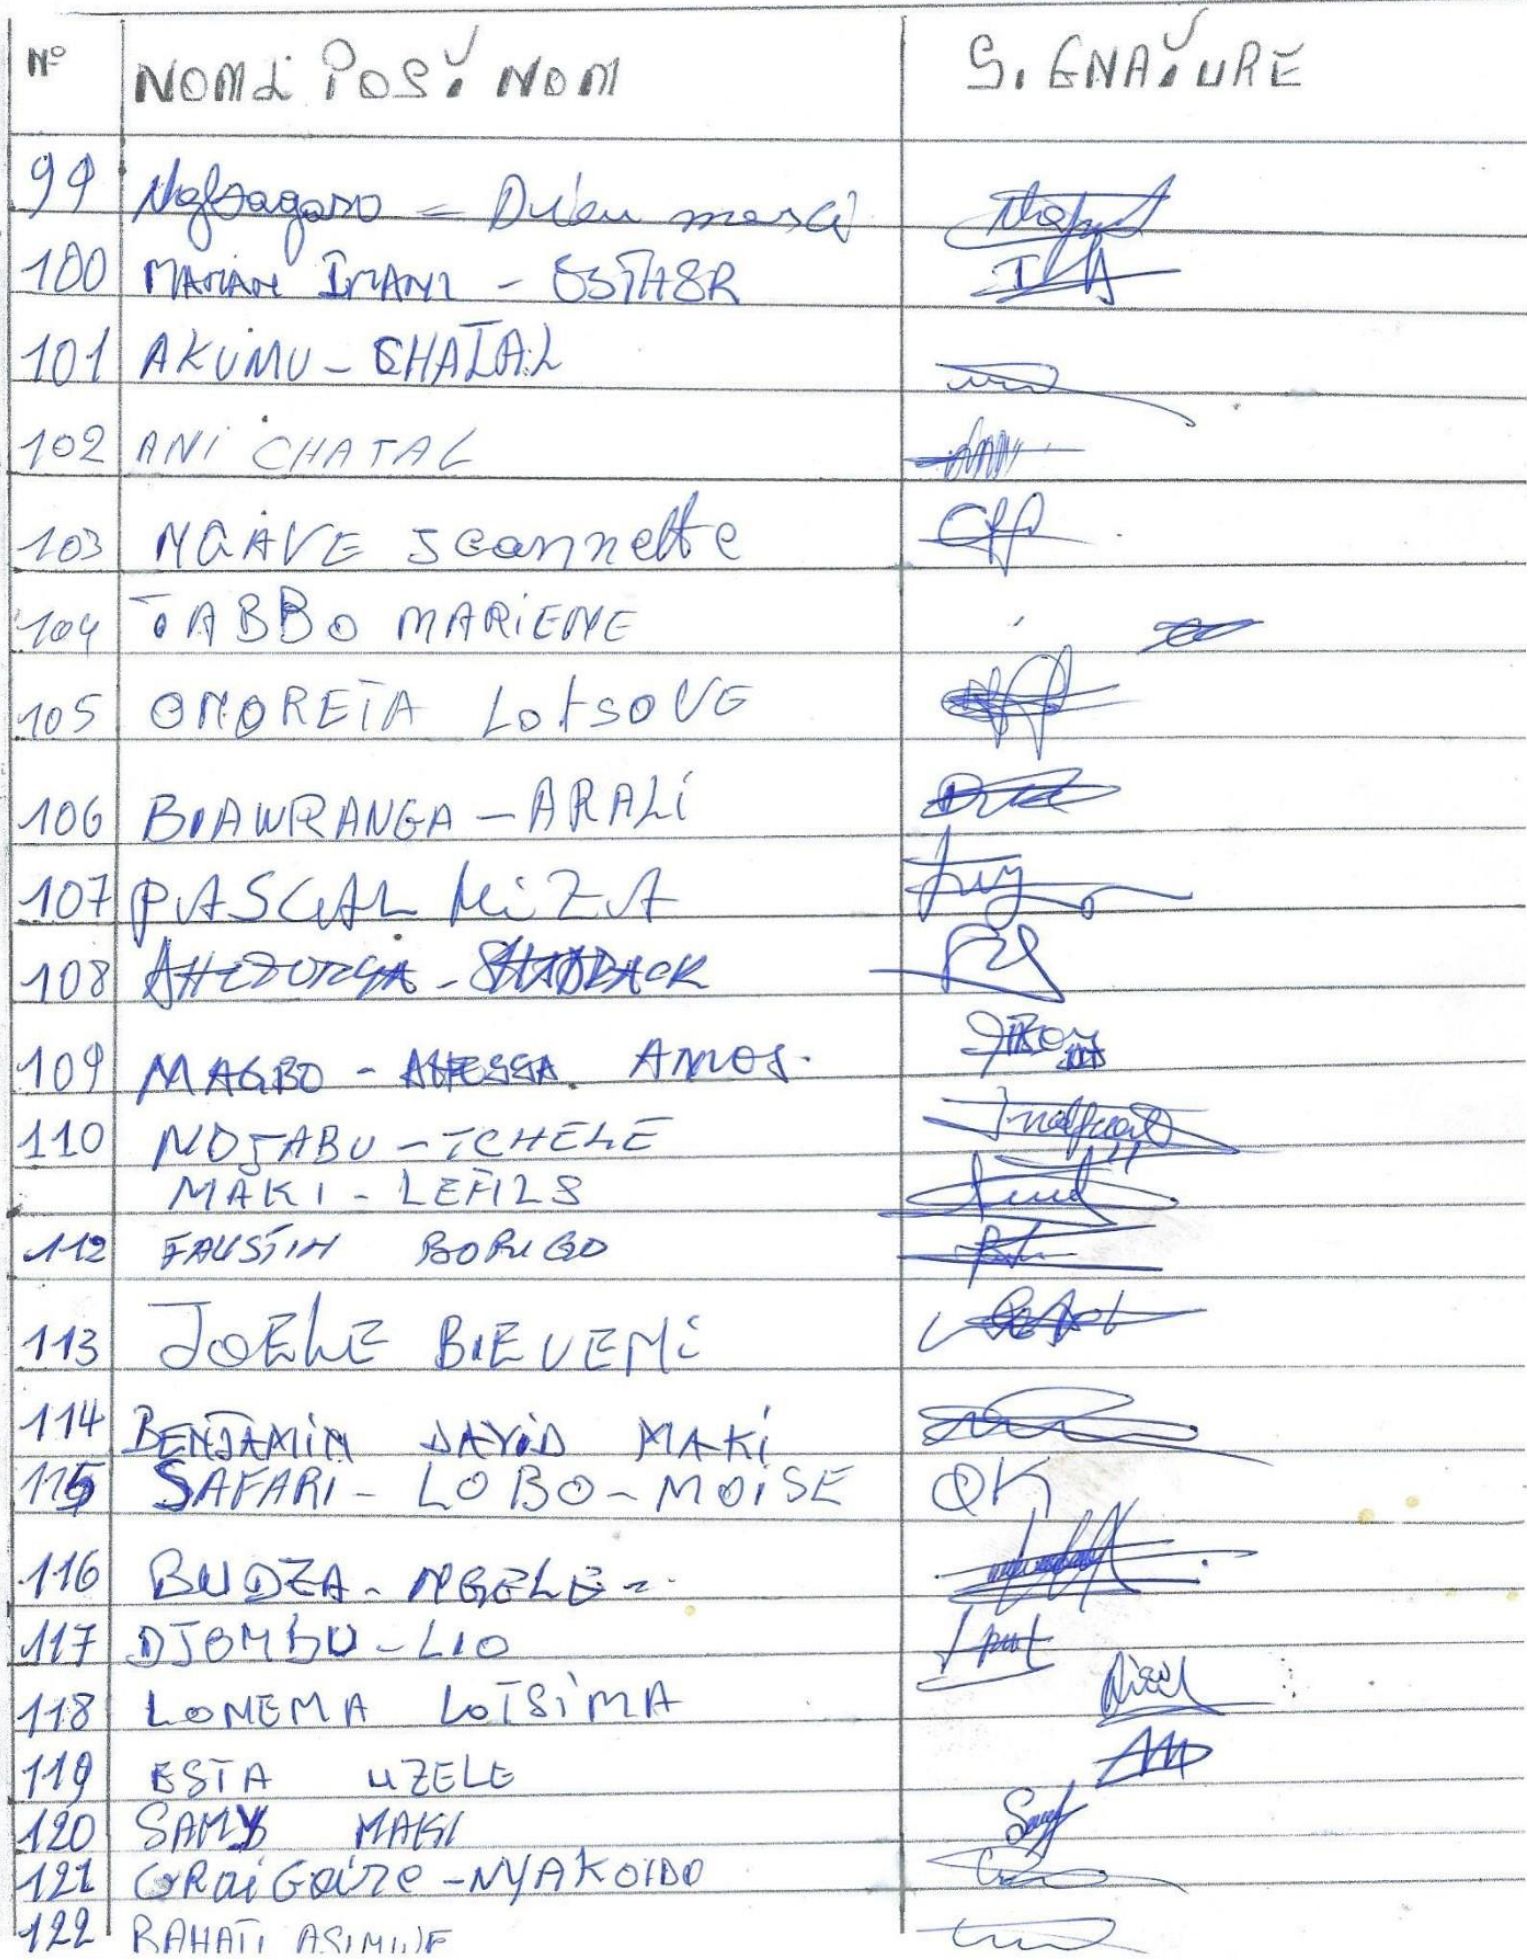 N° NOM & POST NOM SIGNATURE
99 Dieu merci
100 MAMAN IMANI - ESTHER
101 AKUMU - CHATAL
102 ANI CHATAL
103 NGAVE Jeannette
104 TABBO MARIENE
105 ONORETA LOTSOVE
106 BIAWRANGA - ARALI
107 PASCAL NIZA
108 - SHADRACK
109 MAGBO - AMOS.
110 NDJABU - TCHELE
MAKI - LEFILS
112 FAUSTIN BORIGO
113 JOELE BIEVENI
114 BENJAMIN DAVID MAKI
115 SAFARI - LOBO - MOISE OK
116 BUDZA - NGELE -
117 DJOMBU - LIO
118 LONEMA LOTSIMA
119 ESTA UZELE
120 SAMY MAKI
121 GRAIGOIRE - NYAKOIDO
122 RAHATI